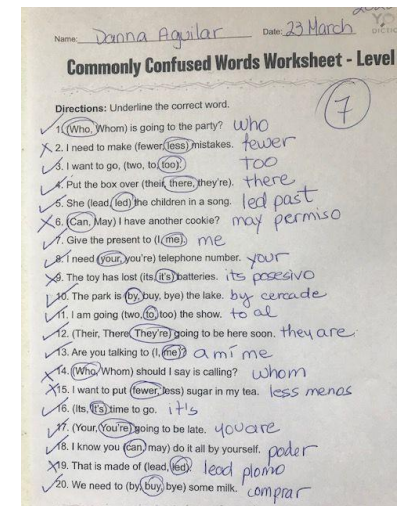 Name: Danna Aguilar Date: 23 March
Commonly Confused Words Worksheet - Level
Directions: Underline the correct word.
7
1. (Who, Whom) is going to the party? who
2. I need to make (fewer, less) mistakes. fewer
3. I want to go, (two, to, too). Too
4. Put the box over (their, there, they're). there
5. She (lead, led) the children in a song. led past
6. (Can, May) I have another cookie? may permiso
7. Give the present to (I, me). me
8. I need (your, you're) telephone number. your
9. The toy has lost (its, it's) batteries. its posesivo
10. The park is (by, buy, bye) the lake. by cercade
11. I am going (two, to, too) the show. to al
12. (Their, There, They're) going to be here soon. they are
13. Are you talking to (I, me)? a mí me
14. (Who, Whom) should I say is calling? whom
15. I want to put (fewer, less) sugar in my tea. less menos
16. (Its, It's) time to go. it's
17. (Your, You're) going to be late. you are
18. I know you (can, may) do it all by yourself. poder
19. That is made of (lead, led). lead plomo
20. We need to (by, buy, bye) some milk. comprar